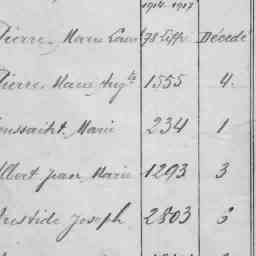 1914.1917
Pierre, Marie Louis 98 Eiffr Décédé
Pierre, Marie Augte 1555 4.
Toussaint Marie 234 1
Albert Jean Marie 1293 3
Aristide Joseph 2803 3